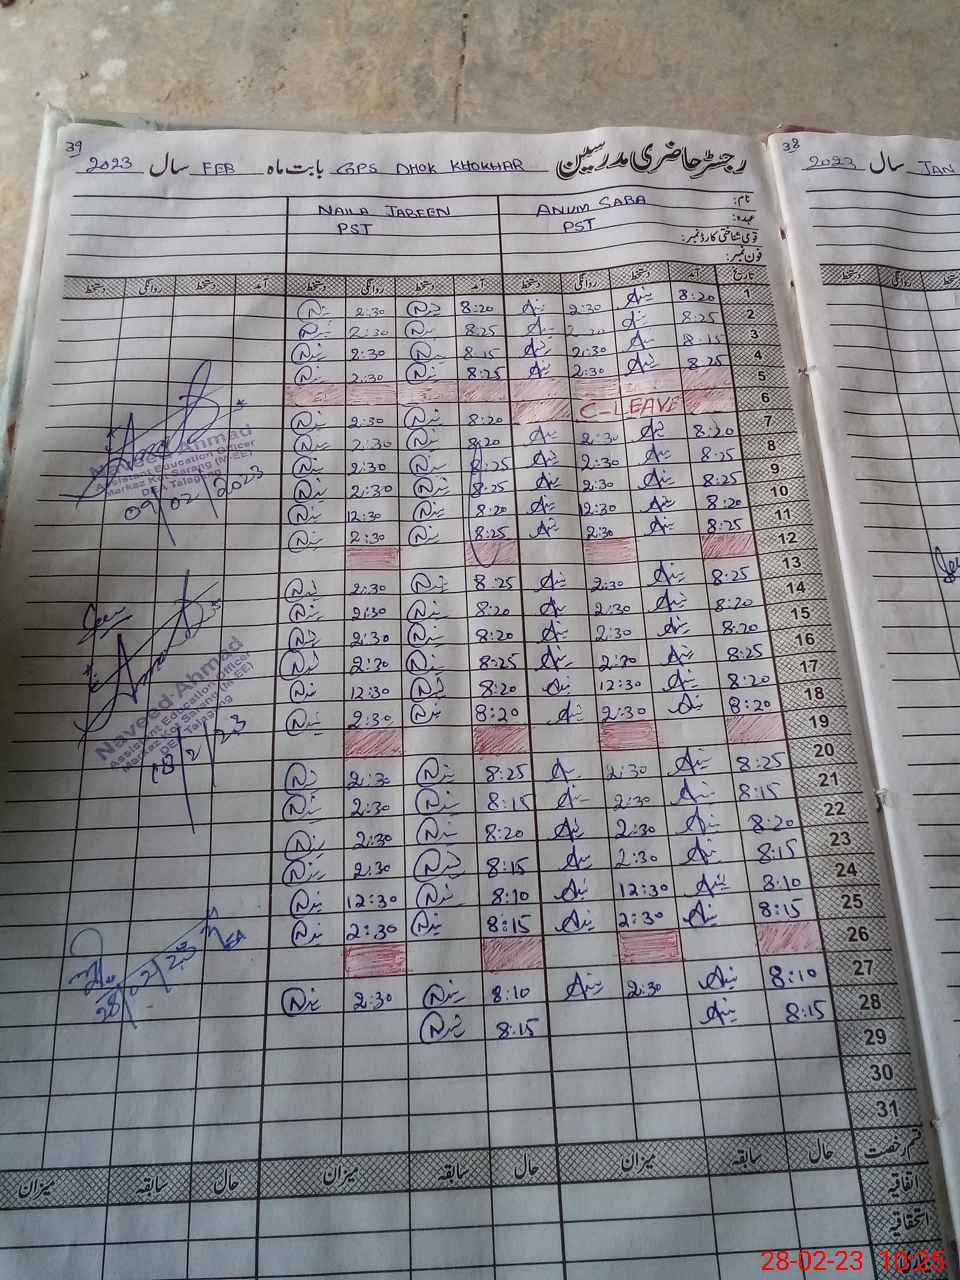 39
رجسٹر حاضری مدرسین GPS DHOK KHOKHAR بابت ماہ FEB سال 2023
نام: ANUM SABA NAILA JABEEN
عہدہ: PST PST
قومی شناختی کارڈ نمبر:
فون نمبر:
تاریخ آمد دستخط روانگی دستخط آمد دستخط روانگی دستخط آمد دستخط روانگی دستخط
1 8:20 2:30 8:20 2:30
2 8:25 8:25 2:30
3 8:15 2:30 8:15 2:30
4 8:25 2:30 8:25 2:30
5
6 C-LEAVE 8:20 2:30
7 8:20 2:30 8:20 2:30
8 8:25 2:30 8:25 2:30
9 8:25 2:30 8:25 2:30
10 8:20 12:30 8:20 12:30
11 8:25 2:30 8:25 2:30
12
13 8:25 2:30 8:25 2:30
14 8:20 2:30 8:20 2:30
15 8:20 2:30 8:20 2:30
16 8:25 2:30 8:25 2:30
17 8:20 12:30 8:20 12:30
18 8:20 2:30 8:20 2:30
19
20 8:25 2:30 8:25 2:30
21 8:15 2:30 8:15 2:30
22 8:20 2:30 8:20 2:30
23 8:15 2:30 8:15 2:30
24 8:10 12:30 8:10 12:30
25 8:15 2:30 8:15 2:30
26
27 8:10 2:30 8:10 2:30
28 8:15 8:15
29
30
31
قسم رخصت حال سابقہ میزان حال سابقہ میزان حال سابقہ میزان
اتفاقیہ
استحقاقیہ
Naveed Ahmad
Assistant Education Officer
Markaz Kot Sarang (M-EE)
DEA Talagang
09/02/2023
Seen
Naveed Ahmad
Assistant Education Officer
Markaz Kot Sarang (M-EE)
DEA Talagang
18/2/23
28/02/23 MEA
38
سال 2023 JAN
28-02-23 10:25